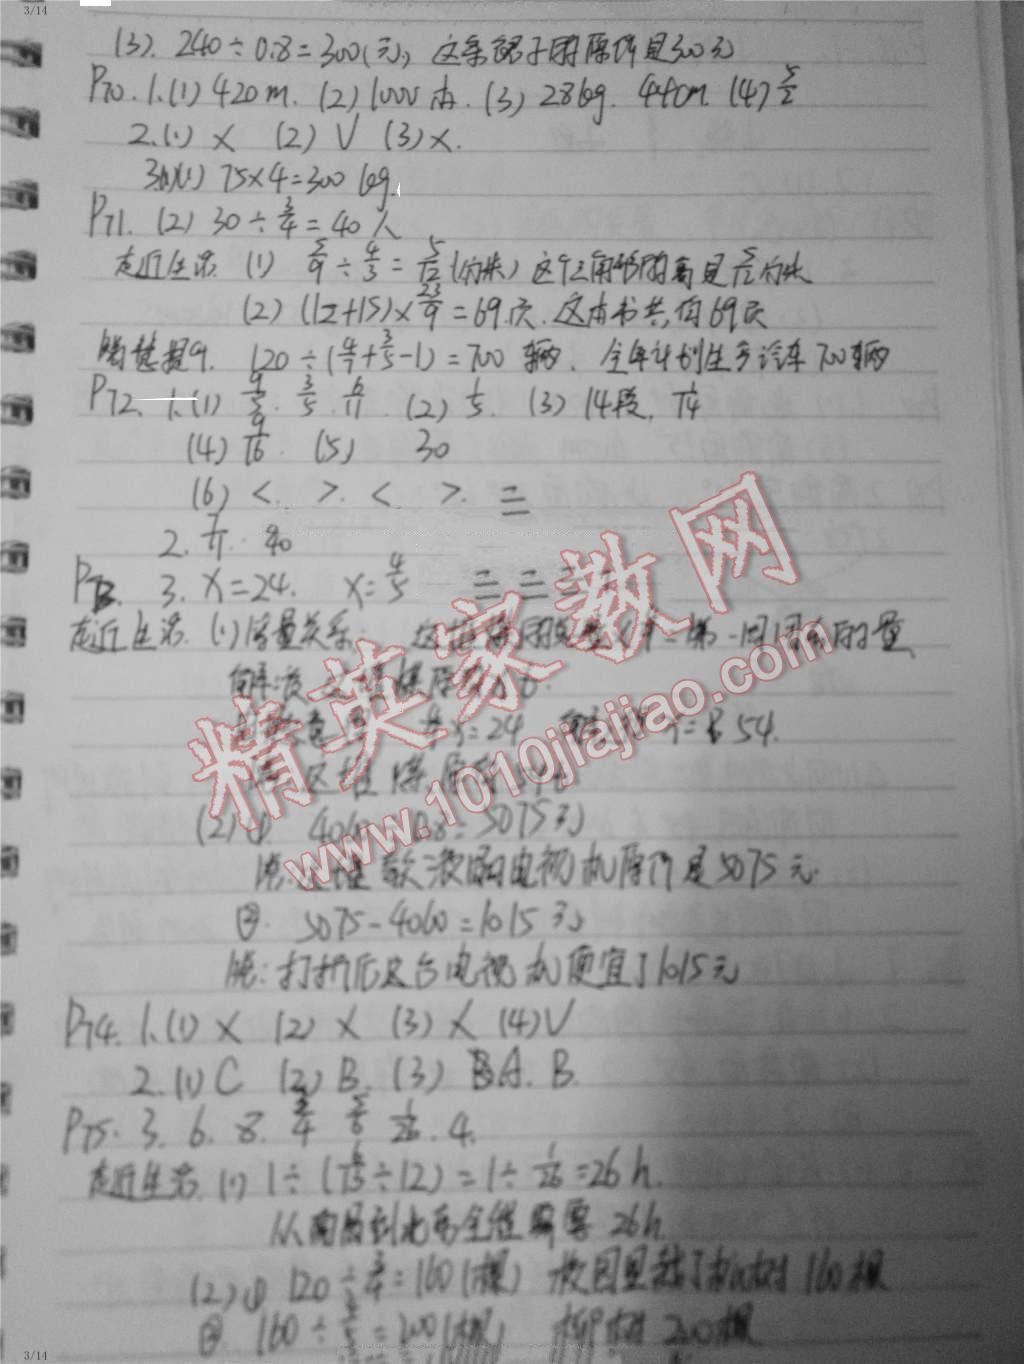 3/14
(3). 240÷0.8=300(元), 这条裙子的原价是300元
P70. 1.(1) 420m. (2) 1000本. (3) 28kg. 44cm. (4) 5/2
2.(1) × (2) √ (3) ×.
3.(1) 75×4=300 kg.
P71. (2) 30÷3/4=40人
走近生活 (1) 5/9÷4/3=5/12(分米) 这个三角形的高是5/12分米
(2) (12+15)×23/9=69页. 这本书共有69页
智慧提升. 120÷(4/7+3/5-1)=700辆. 全年计划生产汽车700辆
P72. 1.(1) 9/5. 3/5. 6/11. (2) 1/5. (3) 14段. 1/14
(4) 9/16. (5) 30
(6) <. >. < >. =
2. 7/11. 90
P73. 3. x=24. x=4/5
走近生活. (1)
x=24 54.
(2)① 4060 0.8=5075元
电视机原价是5075元.
②. 5075-4060=1015元
答:打折后这台电视机便宜了1015元
P74. 1.(1) × (2) × (3) × (4) √
2.(1) C (2) B. (3) B A. B.
P75. 3. 6. 8. 3/4 5/6 1/26. 4.
走近生活. (1) 1÷(6/13÷12)=1÷1/26=26h.
从南昌到北京全程需要 26h
(2)① 120÷3/4=160(棵) 160棵
②. 160÷4/5=200(棵) 柳树200棵
精英家教网
www.1010jiajiao.com
3/14